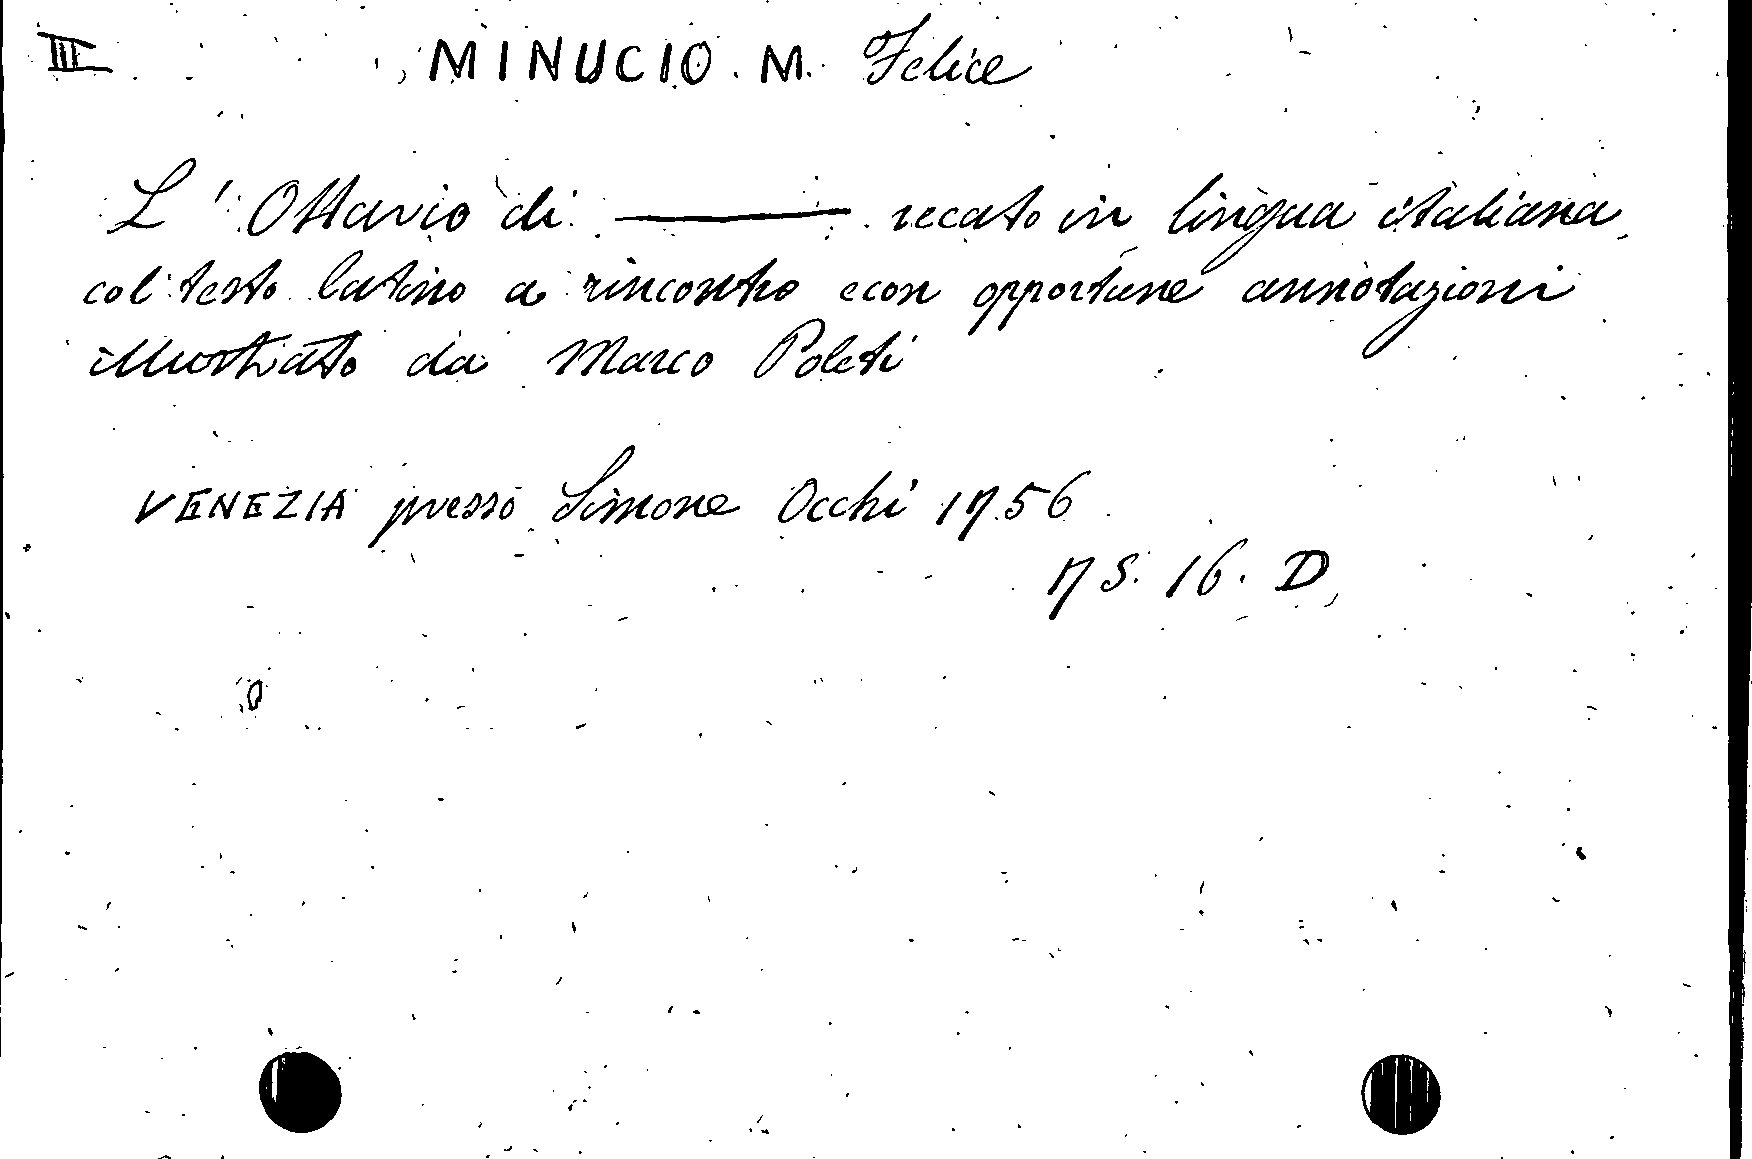 III MINUCIO. M. Felice
L' Ottavio di ——— recato in lingua italiana
col testo latino a rincontro e con opportune annotazioni
illustrato da Marco Poleti
VENEZIA presso Simone Occhi 1756
17 S. 16. D